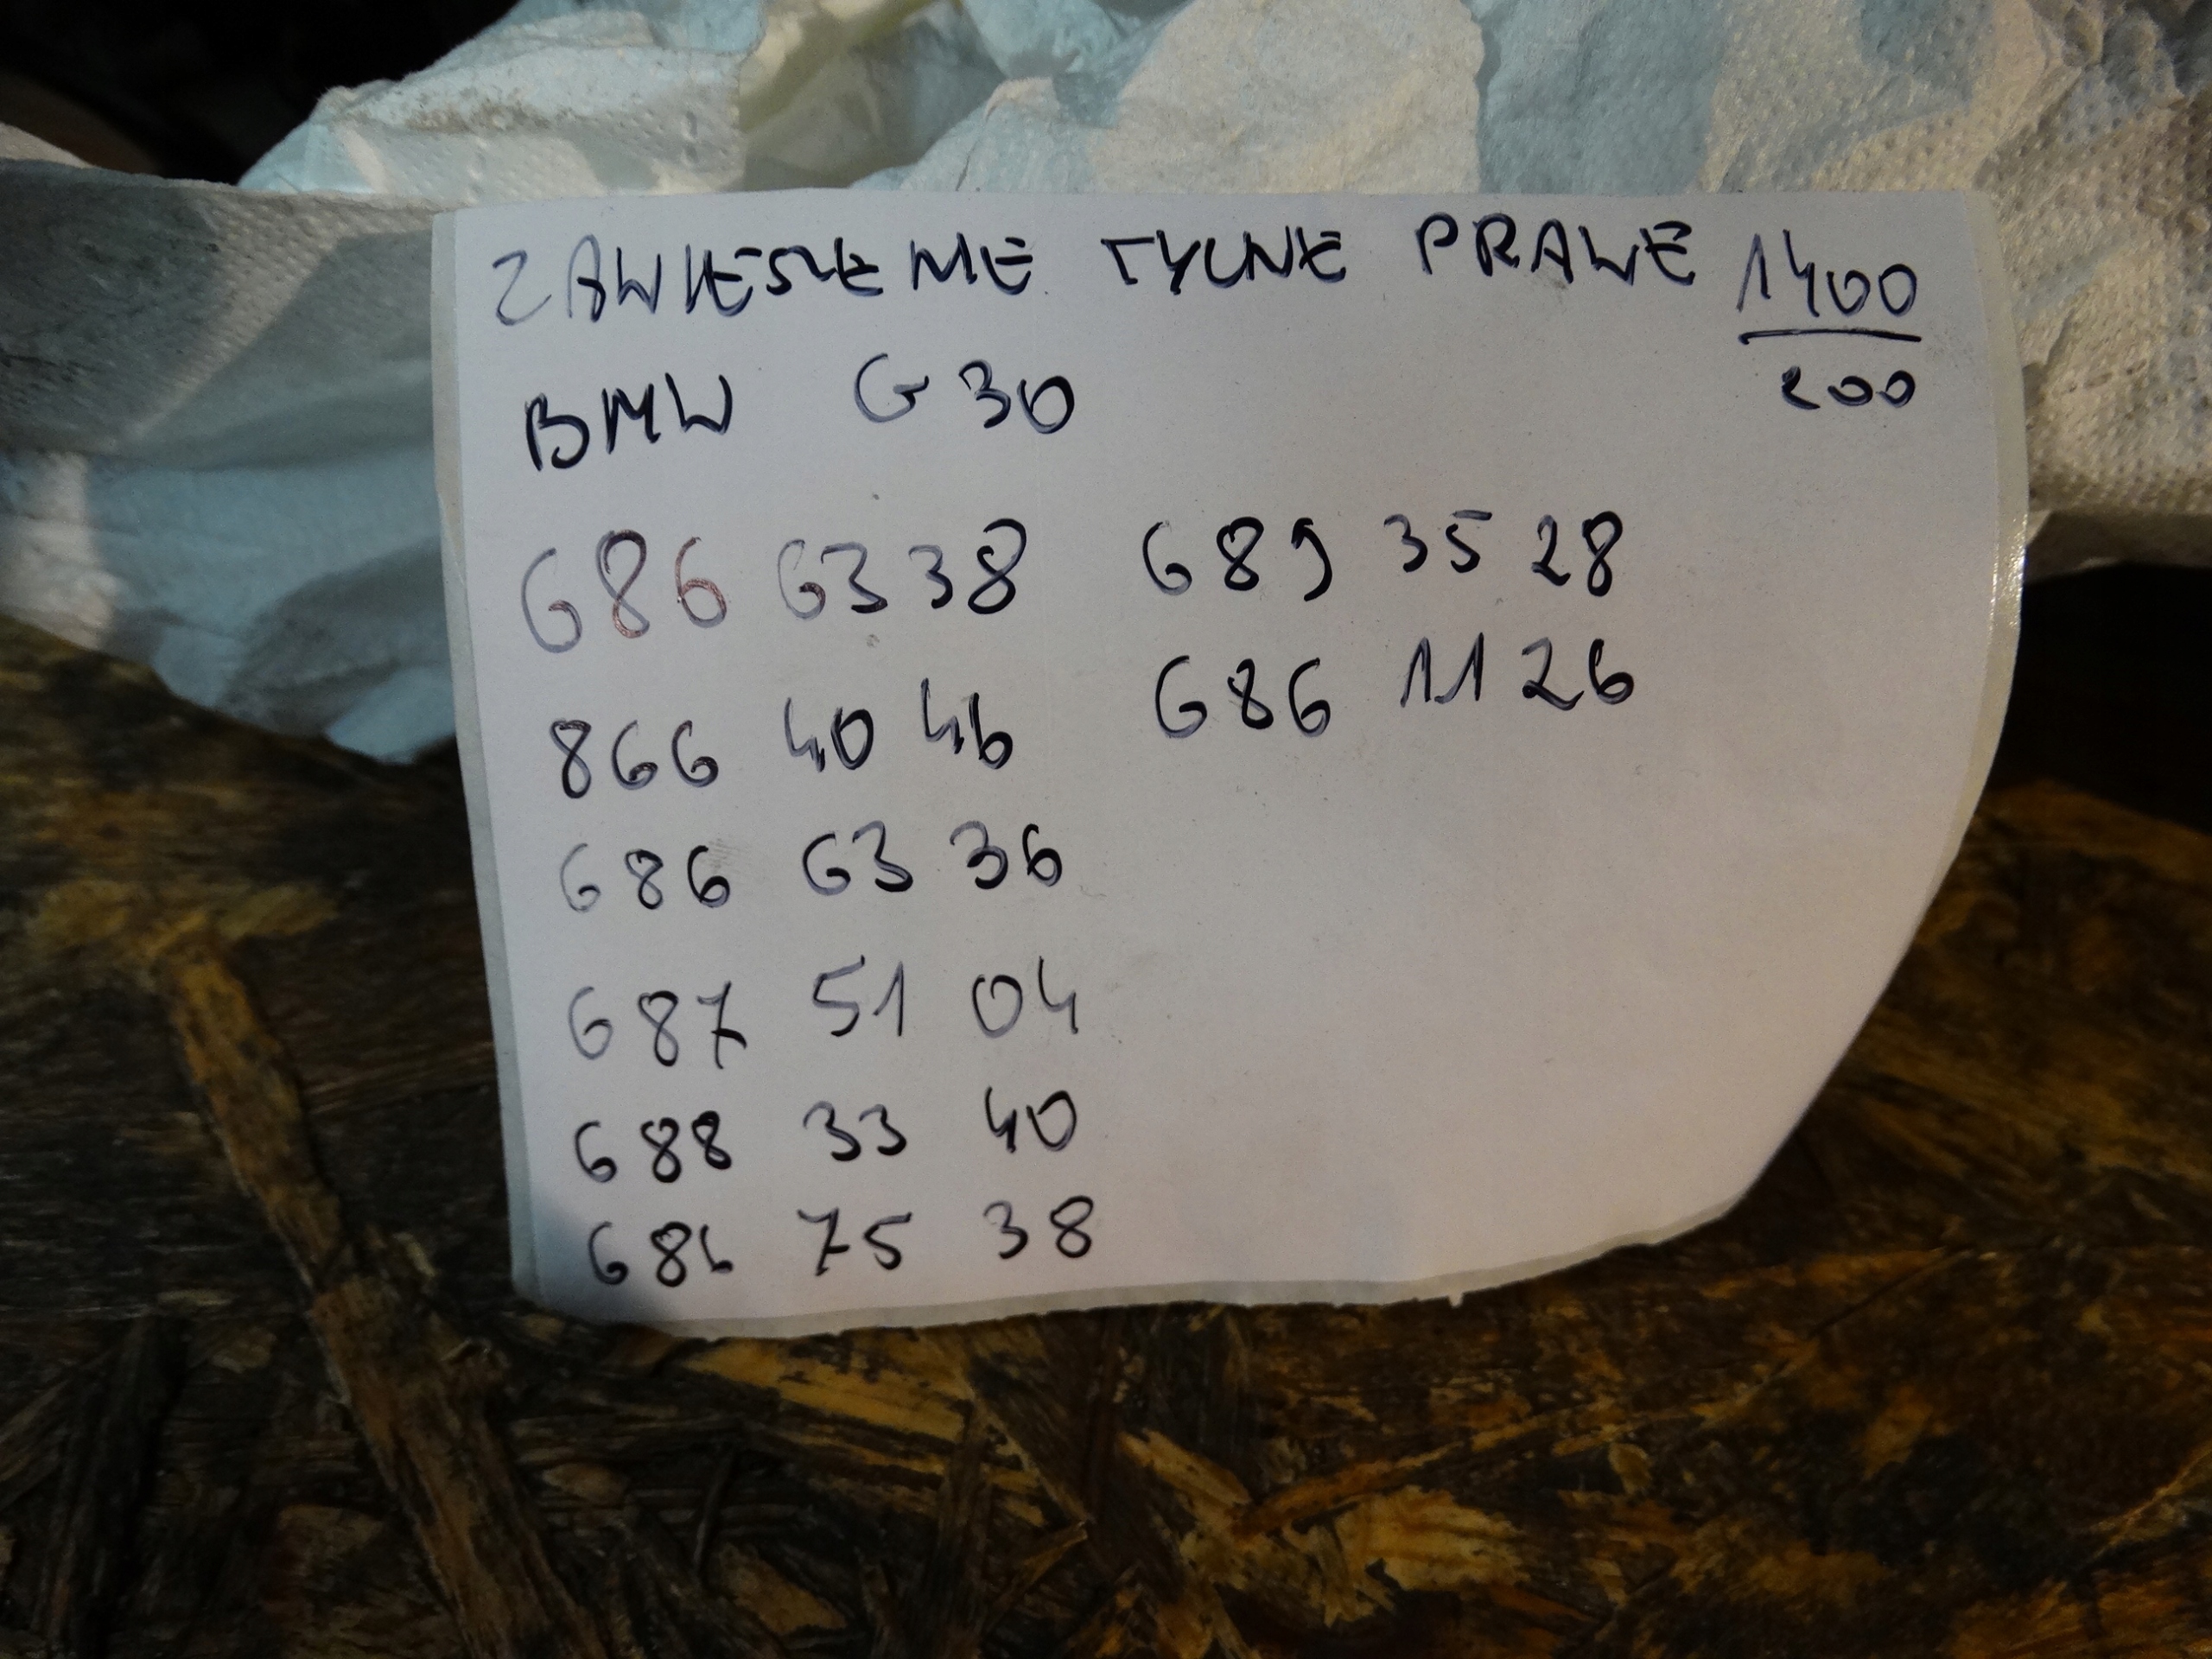 ZAWIESZENIE TYLNE PRAWE 1400
200
BMW G30
686 63 38
866 40 46
686 63 36
687 51 04
688 33 40
686 75 38
689 35 28
686 11 26